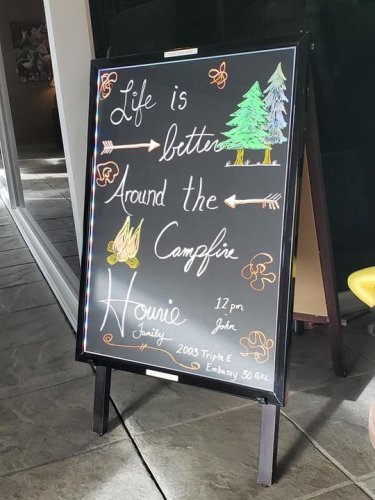 Life is
better
Around the
Campfire
Howie
Family
12 pm
John
2003 Triple E
Embassy 30 GXL